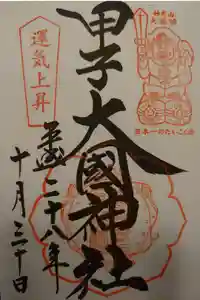 甲子大國神社
運気上昇
平成二十八年
十月三十日
日本一のだいこく様